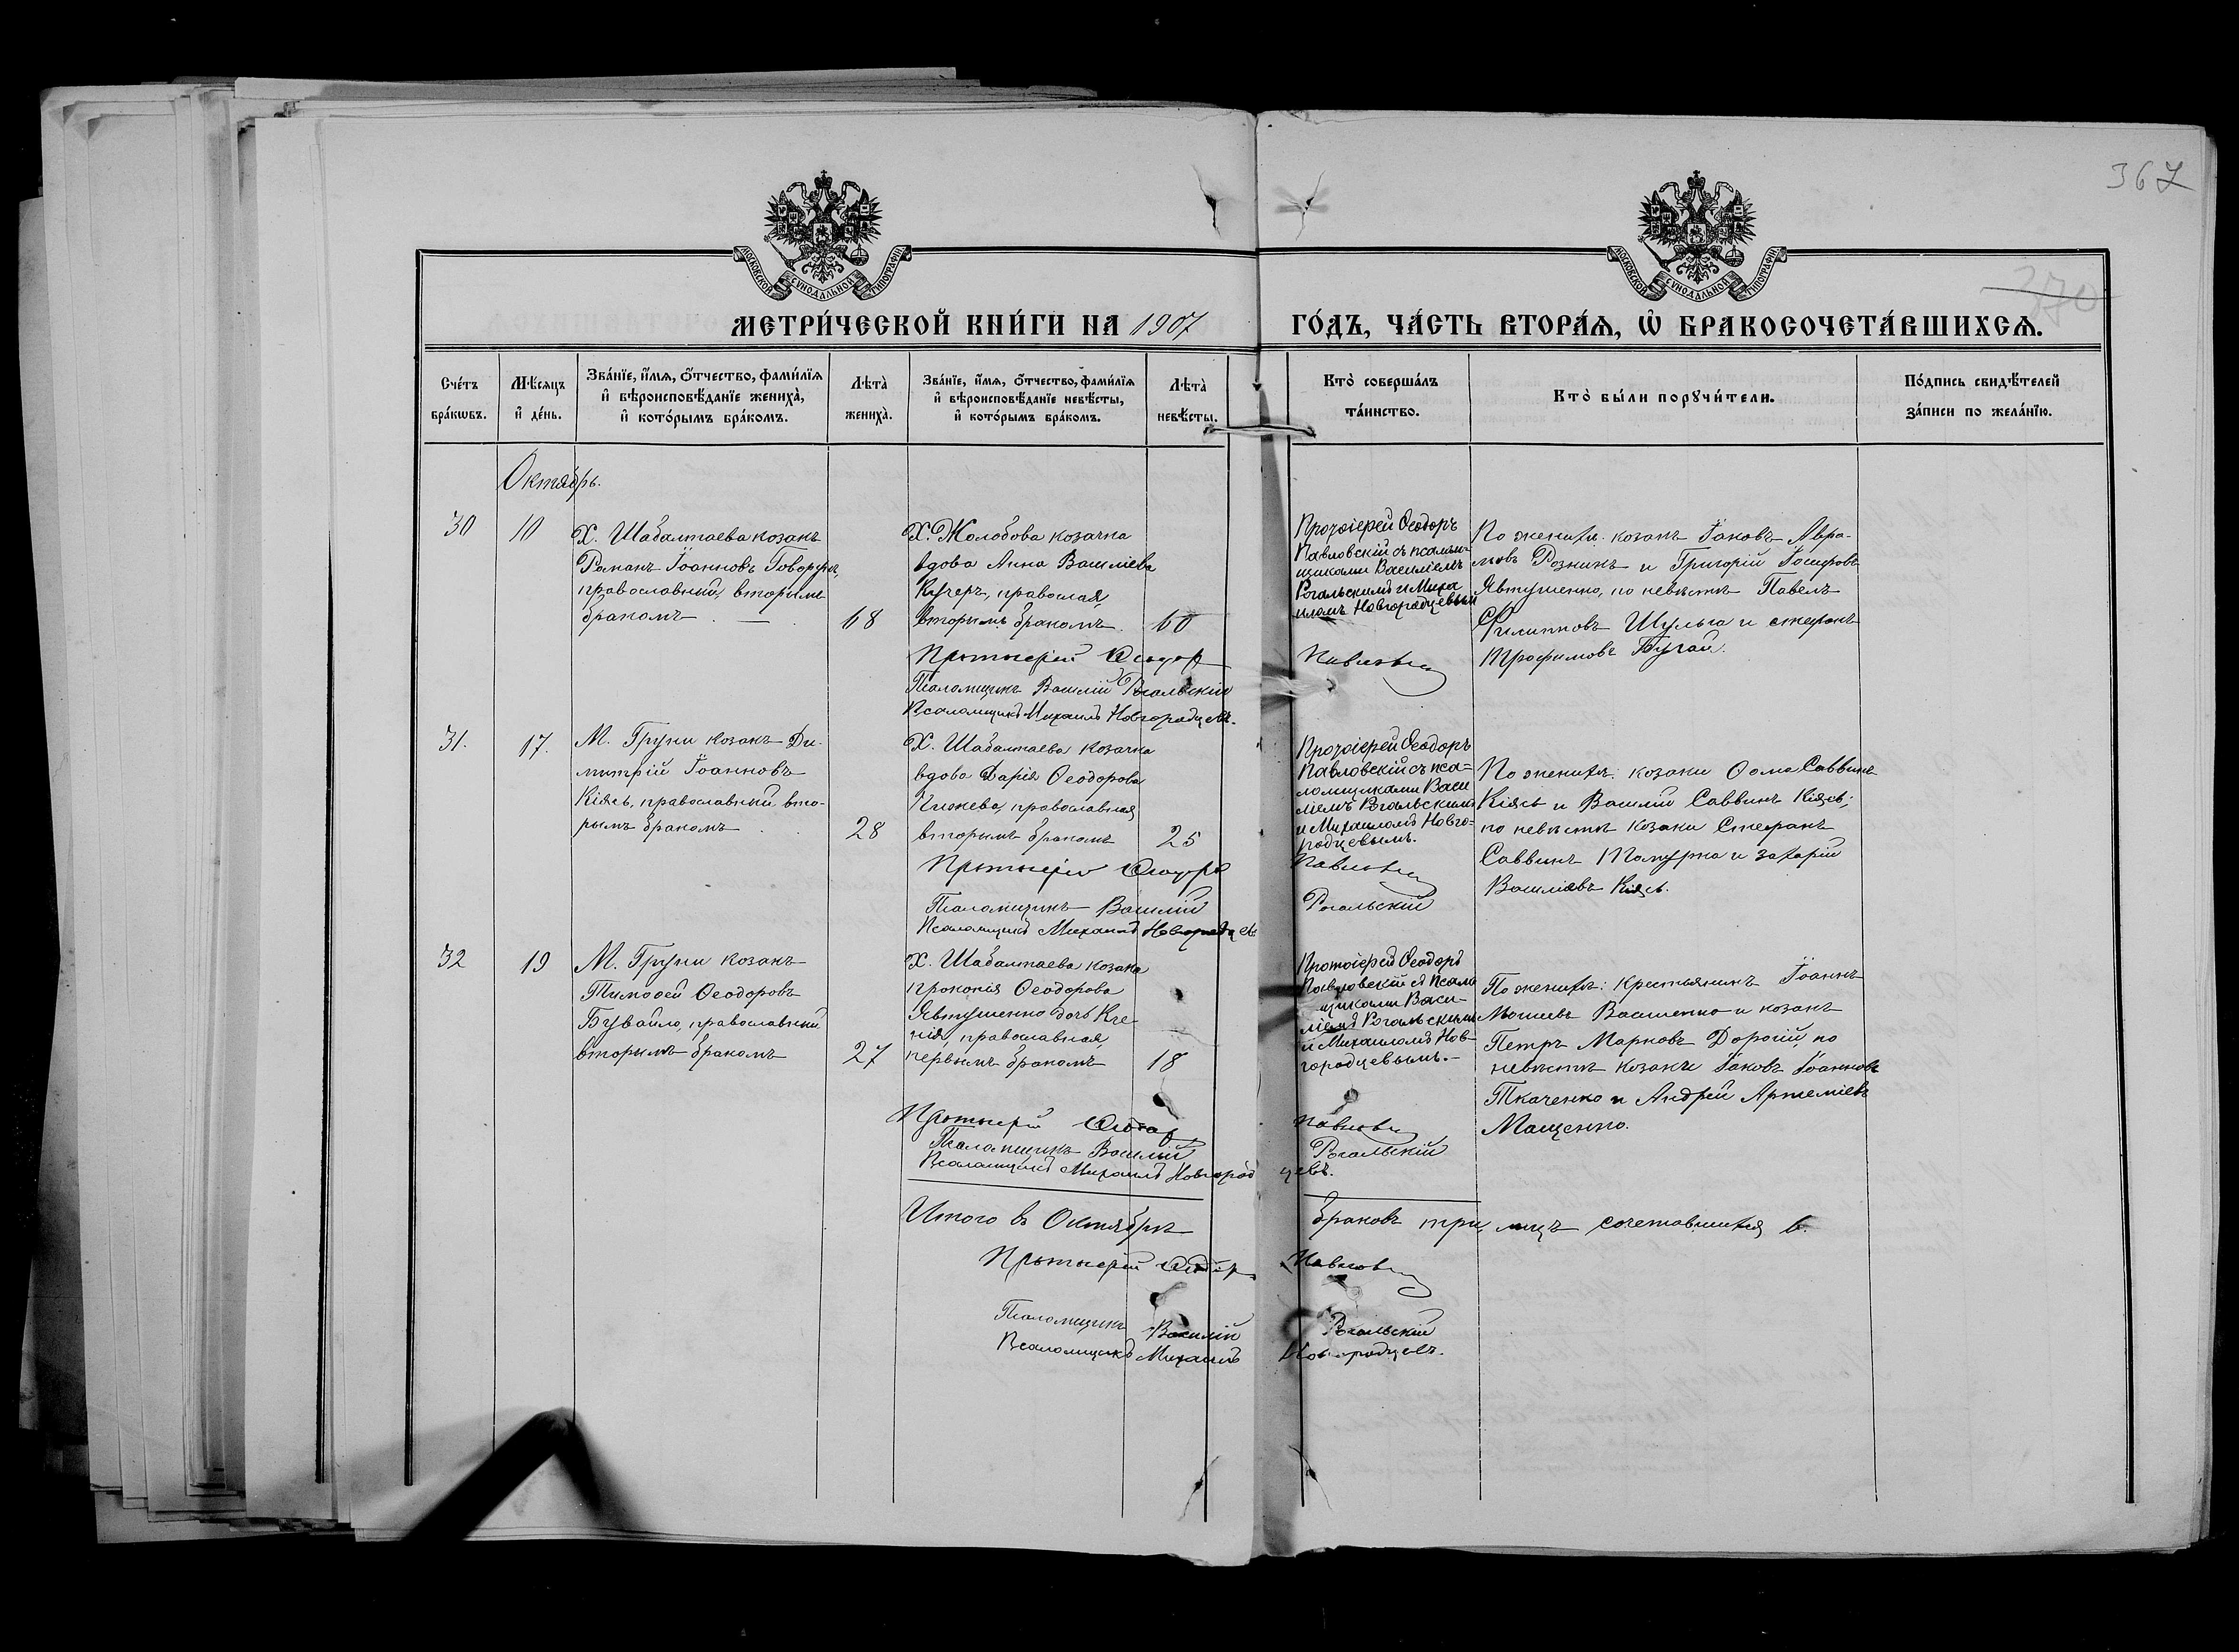 367
370
МОСКОВСКОЙ СѴНОДАЛЬНОЙ ТИПОГРАФІИ
МОСКОВСКОЙ СѴНОДАЛЬНОЙ ТИПОГРАФІИ
МЕТРИ́ЧЕСКОЙ КНИ́ГИ НА 1907 ГО́ДЪ, ЧА́СТЬ ВТОРА́Ѧ, Ѡ҆ БРАКОСОЧЕТА́ВШИХСѦ.
Сче́тъ бра́кѡвъ.
Мѣ́сѧцъ и҆ де́нь.
Зва́нїе, и҆́мѧ, ѻ҆́тчество, фами́лїѧ и҆ вѣроисповѣ́данїе жениха̀, и҆ кото́рымъ бра́комъ.
Лѣта̀ жениха̀.
Зва́нїе, и҆́мѧ, ѻ҆́тчество, фами́лїѧ и҆ вѣроисповѣ́данїе невѣ́сты, и҆ кото́рымъ бра́комъ.
Лѣта̀ невѣ́сты.
Кто̀ соверша́лъ та́инство.
Кто̀ бы́ли порꙋчи́тели.
По́дпись свидѣ́телей за́писи по жела́нїю.
Октябрь.
30
10
Х. Шабалтаева козакъ
Романъ Іоанновъ Говорунъ,
православный, вторымъ
бракомъ
68
Х. Жолобова козачка
вдова Анна Василіева
Кучеръ, православная,
вторымъ бракомъ.
60
Протоіерей Ѳеодоръ
Павловскій съ псаломщиками Василіемъ
Рогальскимъ и Михаиломъ Новгородцевымъ
По женихѣ: козакъ Іаковъ Авра-
мовъ Рознинъ и Григорій Іосифовъ
Явтушенко, по невѣстѣ Павелъ
Филипповъ Шульга и стефанъ
Трофимовъ Бугай.
Протоіерей Ѳеодоръ Павловскій
Псаломщикъ Василій Рогальскій
Псаломщикъ Михаилъ Новгородцевъ.
31.
17.
М. Груни козакъ Ди-
митрій Іоанновъ
Кіясь, православный вто-
рымъ бракомъ
28
Х. Шабалтаева козачка
вдова Дарія Ѳеодорова
Чижева, православная
вторымъ бракомъ
25
Протоіерей Ѳеодоръ
Павловскій съ пса=
ломщиками Васи
ліемъ Рогальскимъ
и Михаиломъ Новго=
родцевымъ.
По женихѣ: козаки Ѳома Саввинъ
Кіясь и Василій Саввинъ Кіясь;
по невѣстѣ козаки Стефанъ
Саввинъ и Захарій
Василіевъ Кіясь.
Протоіерей Ѳеодоръ Павловскій
Псаломщикъ Василій Рогальскій
Псаломщикъ Михаилъ Новгородцевъ
32
19
М. Груни козакъ
Тимоѳей Ѳеодоровъ
Бувайло, православный
вторымъ бракомъ
27
Х. Шабалтаева козака
Прокопія Ѳеодорова
Явтушенко дочь Ксе-
нія, православная,
первымъ бракомъ
18
Протоіерей Ѳеодоръ
Павловскій съ псалом
щиками Васи-
ліемъ Рогальскимъ
и Михаиломъ Нов-
городцевымъ.-
По женихѣ: крестьянинъ Іоаннъ
Моисеевъ Василенко и козакъ
Петръ Марковъ Дорогій, по
невѣстѣ козаки Іаковъ Іоанновъ
Ткаченко и Андрей Артеміевъ
Мащенко.
Протоіерей Ѳеодоръ Павловскій
Псаломщикъ Василій Рогальскій
Псаломщикъ Михаилъ Новгородцевъ.
Итого въ Октябрѣ браковъ три, лицъ сочетавшихся 6.
Протоіерей Ѳеодоръ Павловскій
Псаломщикъ Василій Рогальскій
Псаломщикъ Михаилъ Новгородцевъ.